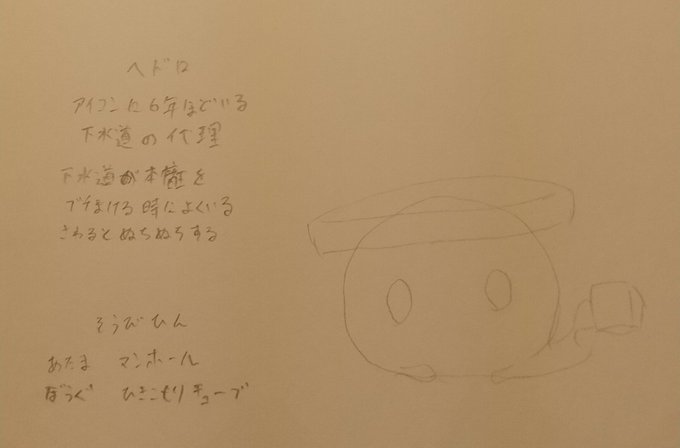 ヘドロ
アイコンに6年ほどいる
下水道の代理
下水道が本音を
ブチまける時によくいる
さわるとぬちぬちする
そうびひん
あたま マンホール
ぼうぐ ひきこもりキューブ